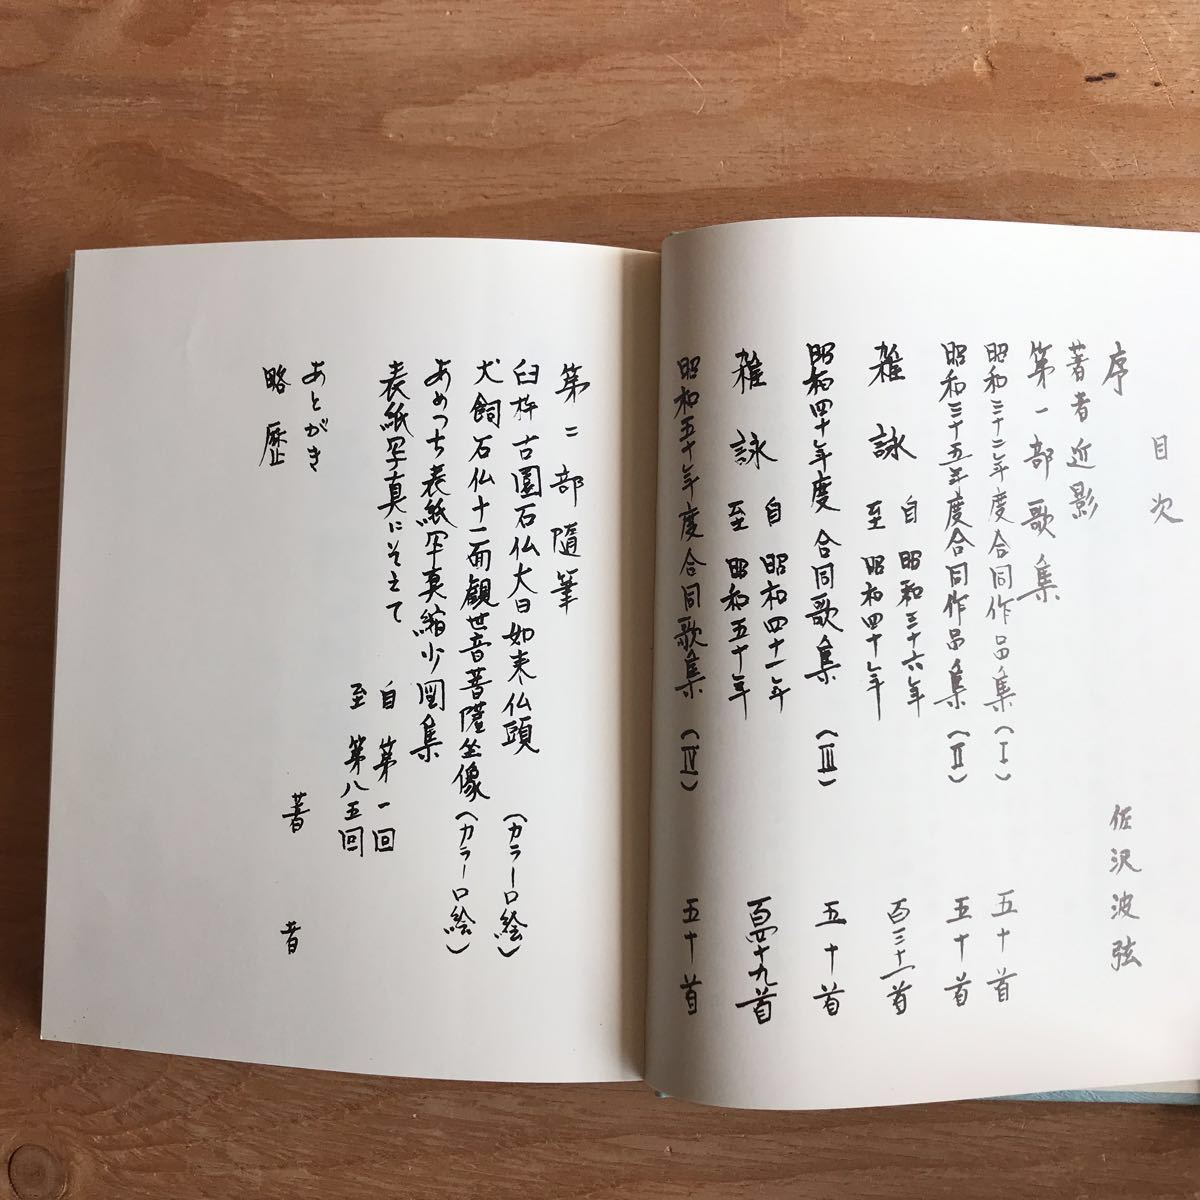 目次
序 佐沢波弦
著者近影
第一部歌集
昭和三十二年度合同作品集(Ⅰ) 五十首
昭和三十五年度合同作品集(Ⅱ) 五十首
雑詠 自昭和三十六年 至昭和四十年 百三十一首
昭和四十年度合同歌集(Ⅲ) 五十首
雑詠 自昭和四十一年 至昭和五十年 百四十九首
昭和五十年度合同歌集(Ⅳ) 五十首
第二部随筆
臼杵古園石仏大日如来仏頭(カラー口絵)
犬飼石仏十一面観世音菩薩坐像(カラー口絵)
あめつち表紙写真縮少図集
表紙写真にそえて 自第一回 至第八五回
あとがき 著者
略歴